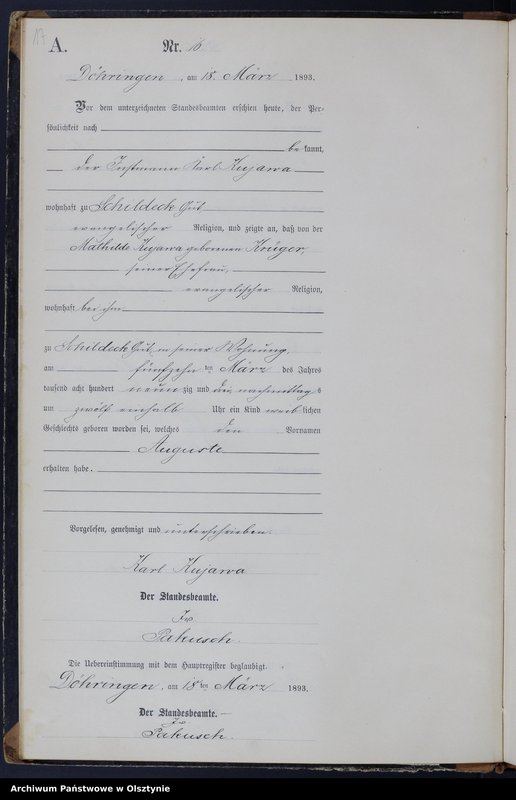 17
A.
Nr. 16
Döhringen, am 18. März 1893.
Vor dem unterzeichneten Standesbeamten erschien heute, der Per-
sönlichkeit nach
be kannt,
der Instmann Karl Kujawa
wohnhaft zu Schildeck Gut
evangelischer Religion, und zeigte an, daß von der
Mathilde Kujawa geborenen Krüger,
seiner Ehefrau,
evangelischer Religion,
wohnhaft bei ihm
zu Schildeck Gut in seiner Wohnung,
am fünfzehn ten März des Jahres
tausend acht hundert neun zig und drei nachmittag s
um zwölf einhalb Uhr ein Kind weib lichen
Geschlechts geboren worden sei, welches den Vornamen
Auguste
erhalten habe.
Vorgelesen, genehmigt und unterschrieben.
Karl Kujawa
Der Standesbeamte.
Pakusch.
Die Uebereinstimmung mit dem Hauptregister beglaubigt.
Döhringen, am 18 ten März 1893.
Der Standesbeamte.
Pakusch.
Archiwum Państwowe w Olsztynie